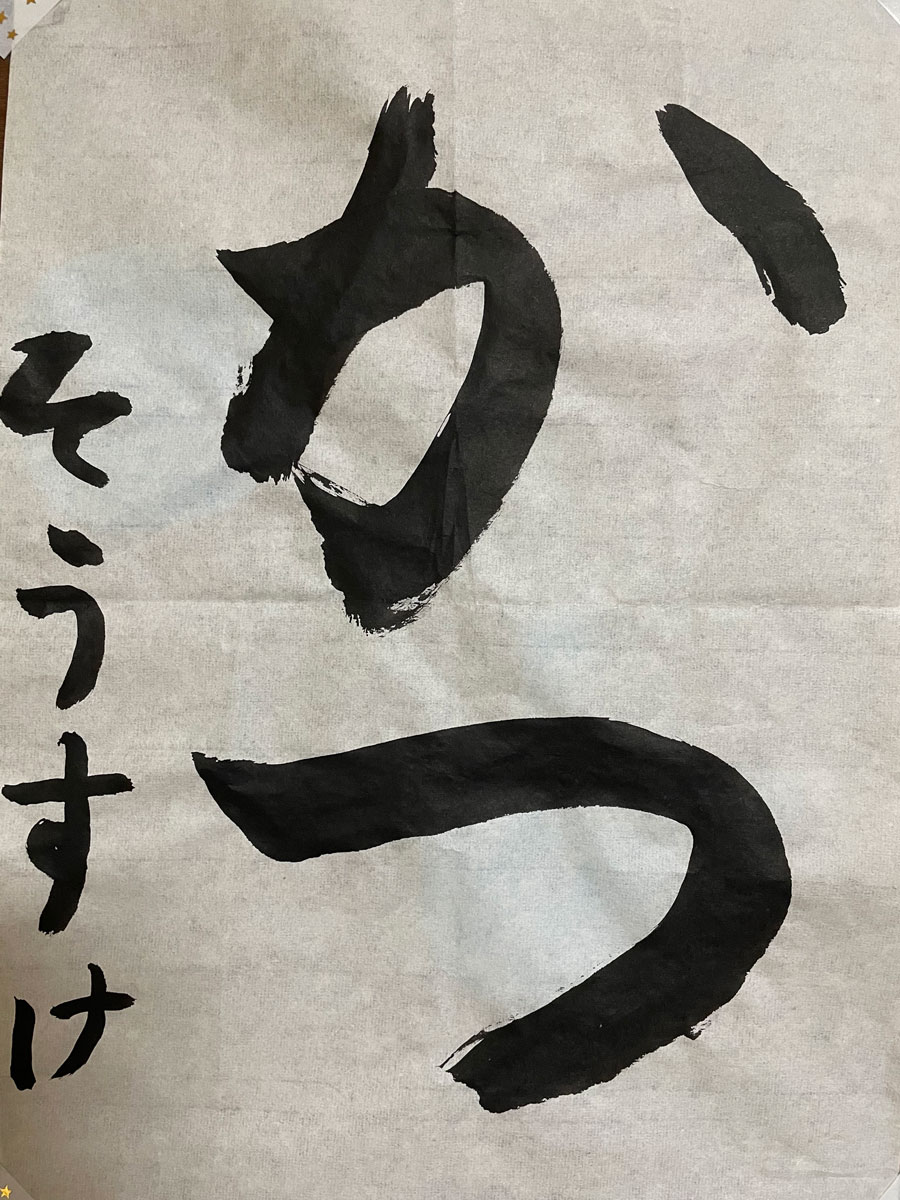 かつ
そうすけ